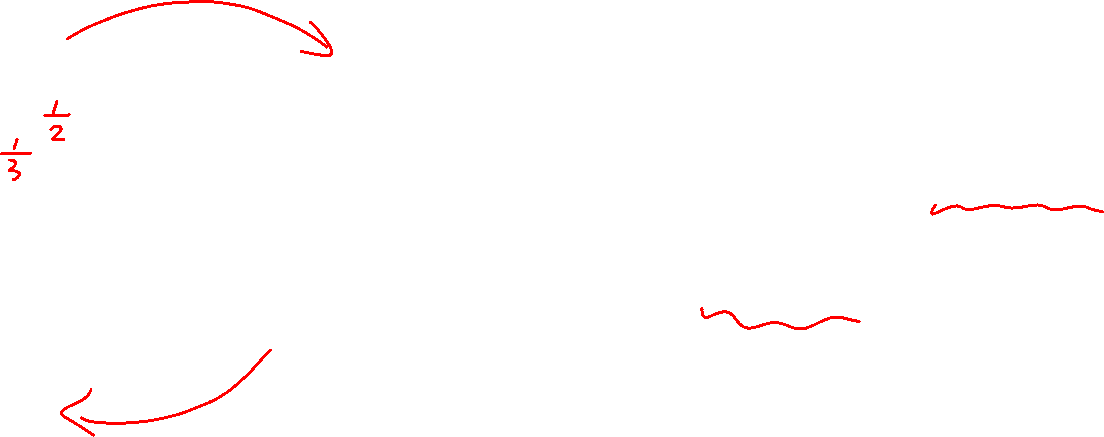 1/2
1/3